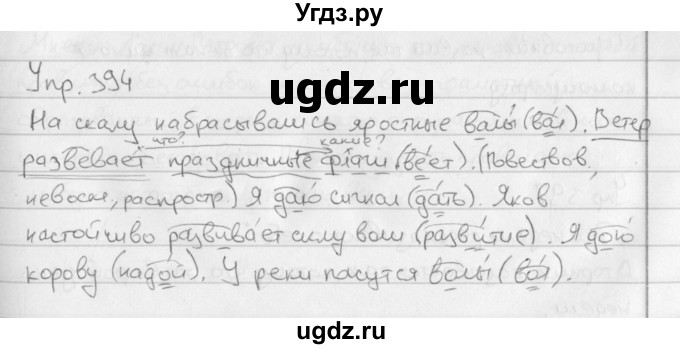 Угдз.ру
Упр. 394
ugdz.ru
На скалу набрасывались яростные валы (вал). Ветер
что? какие?
развевает праздничные флаги (веет). (Повествов.,
невоскл., распростр.) Я даю сигнал (дать). Яков
настойчиво развивает силу воли (развитие). Я дою
корову (надой). У реки пасутся волы (вол).
ugdz.ru